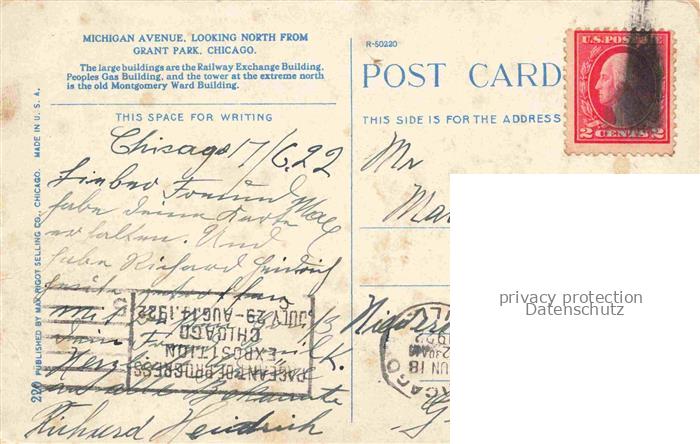 MICHIGAN AVENUE, LOOKING NORTH FROM
GRANT PARK, CHICAGO.
The large buildings are the Railway Exchange Building,
Peoples Gas Building, and the tower at the extreme north
is the old Montgomery Ward Building.
THIS SPACE FOR WRITING
Chicago 17/6.22
Lieber Freund Max
habe deine Karte
erhalten. Und
habe Richard Heidrich
heute getroffen
mit
dein
Herzliche
an alle Bekannte
Richard Heidrich
220 PUBLISHED BY MAX RIGOT SELLING CO., CHICAGO. MADE IN U. S. A.
R-50220
POST CARD
THIS SIDE IS FOR THE ADDRESS
U.S. POSTAGE
2 CENTS 2
Mr
privacy protection
Datenschutz
PAGEANT OF PROGRESS
EXPOSITION
CHICAGO
JULY 29-AUG.14.1922
JUN 18
1922